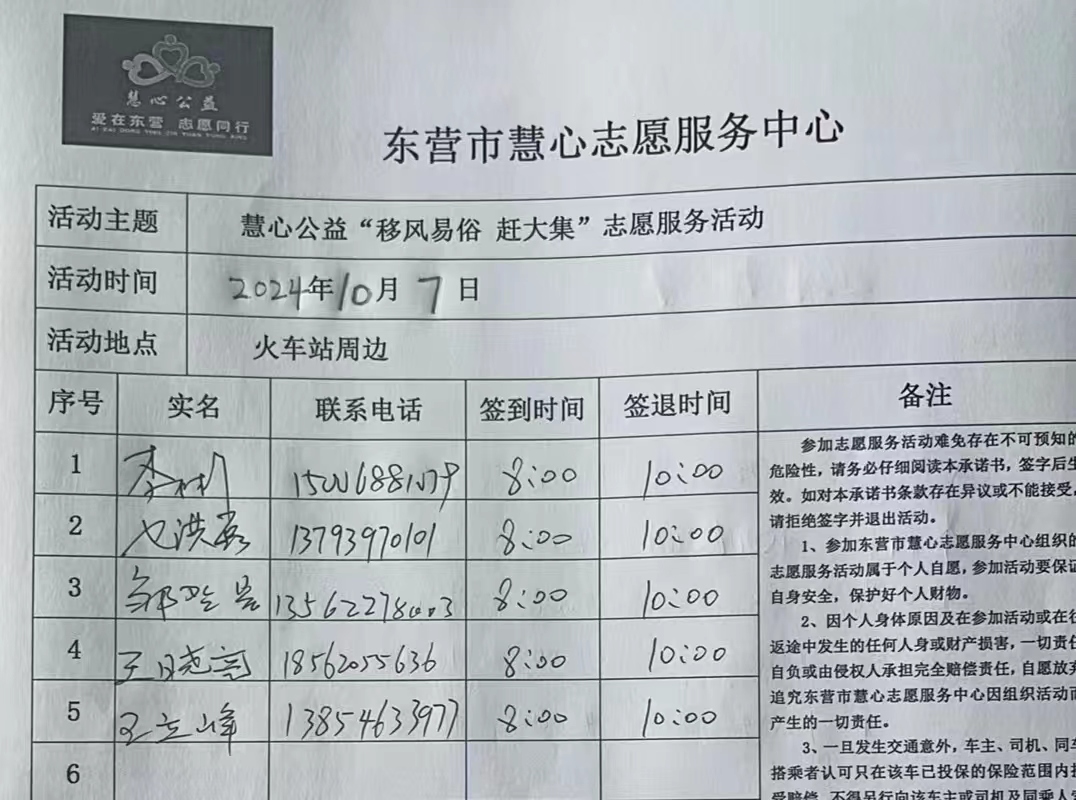 慧心公益
爱在东营 志愿同行
AI ZAI DONG YING ZHI YUAN TONG XING
东营市慧心志愿服务中心
活动主题 慧心公益“移风易俗 赶大集”志愿服务活动
活动时间 2024年10月7日
活动地点 火车站周边
序号 实名 联系电话 签到时间 签退时间 备注
1 8:00 10:00
2 13793970101 8:00 10:00
3 8:00 10:00
4 18562055636 8:00 10:00
5 王立峰 13854633977 8:00 10:00
6
参加志愿服务活动难免存在不可预知的
危险性，请务必仔细阅读本承诺书，签字后生
效。如对本承诺书条款存在异议或不能接受，
请拒绝签字并退出活动。
1、参加东营市慧心志愿服务中心组织的
志愿服务活动属于个人自愿，参加活动要保证
自身安全，保护好个人财物。
2、因个人身体原因及在参加活动或在往
返途中发生的任何人身或财产损害，一切责任
自负或由侵权人承担完全赔偿责任，自愿放弃
追究东营市慧心志愿服务中心因组织活动而
产生的一切责任。
3、一旦发生交通意外，车主、司机、同车
搭乘者认可只在该车已投保的保险范围内接
受赔偿，不得另行向该车主或司机及同乘人